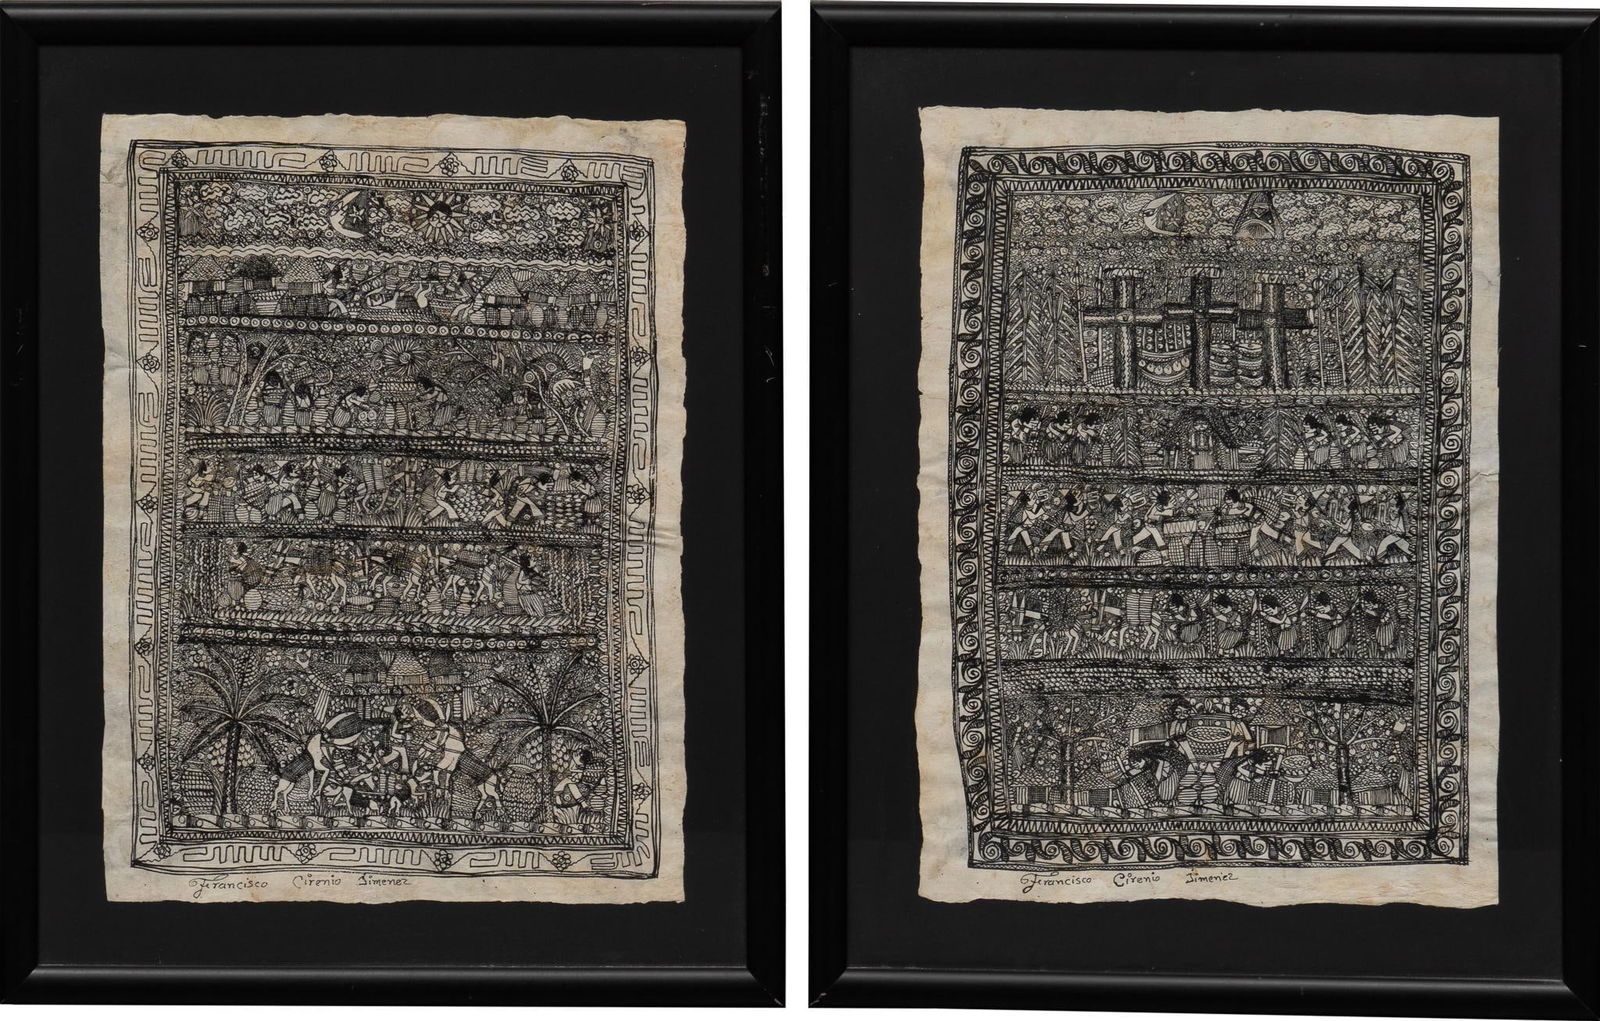 Francisco Cirenio Jimenez
Francisco Cirenio Jimenez